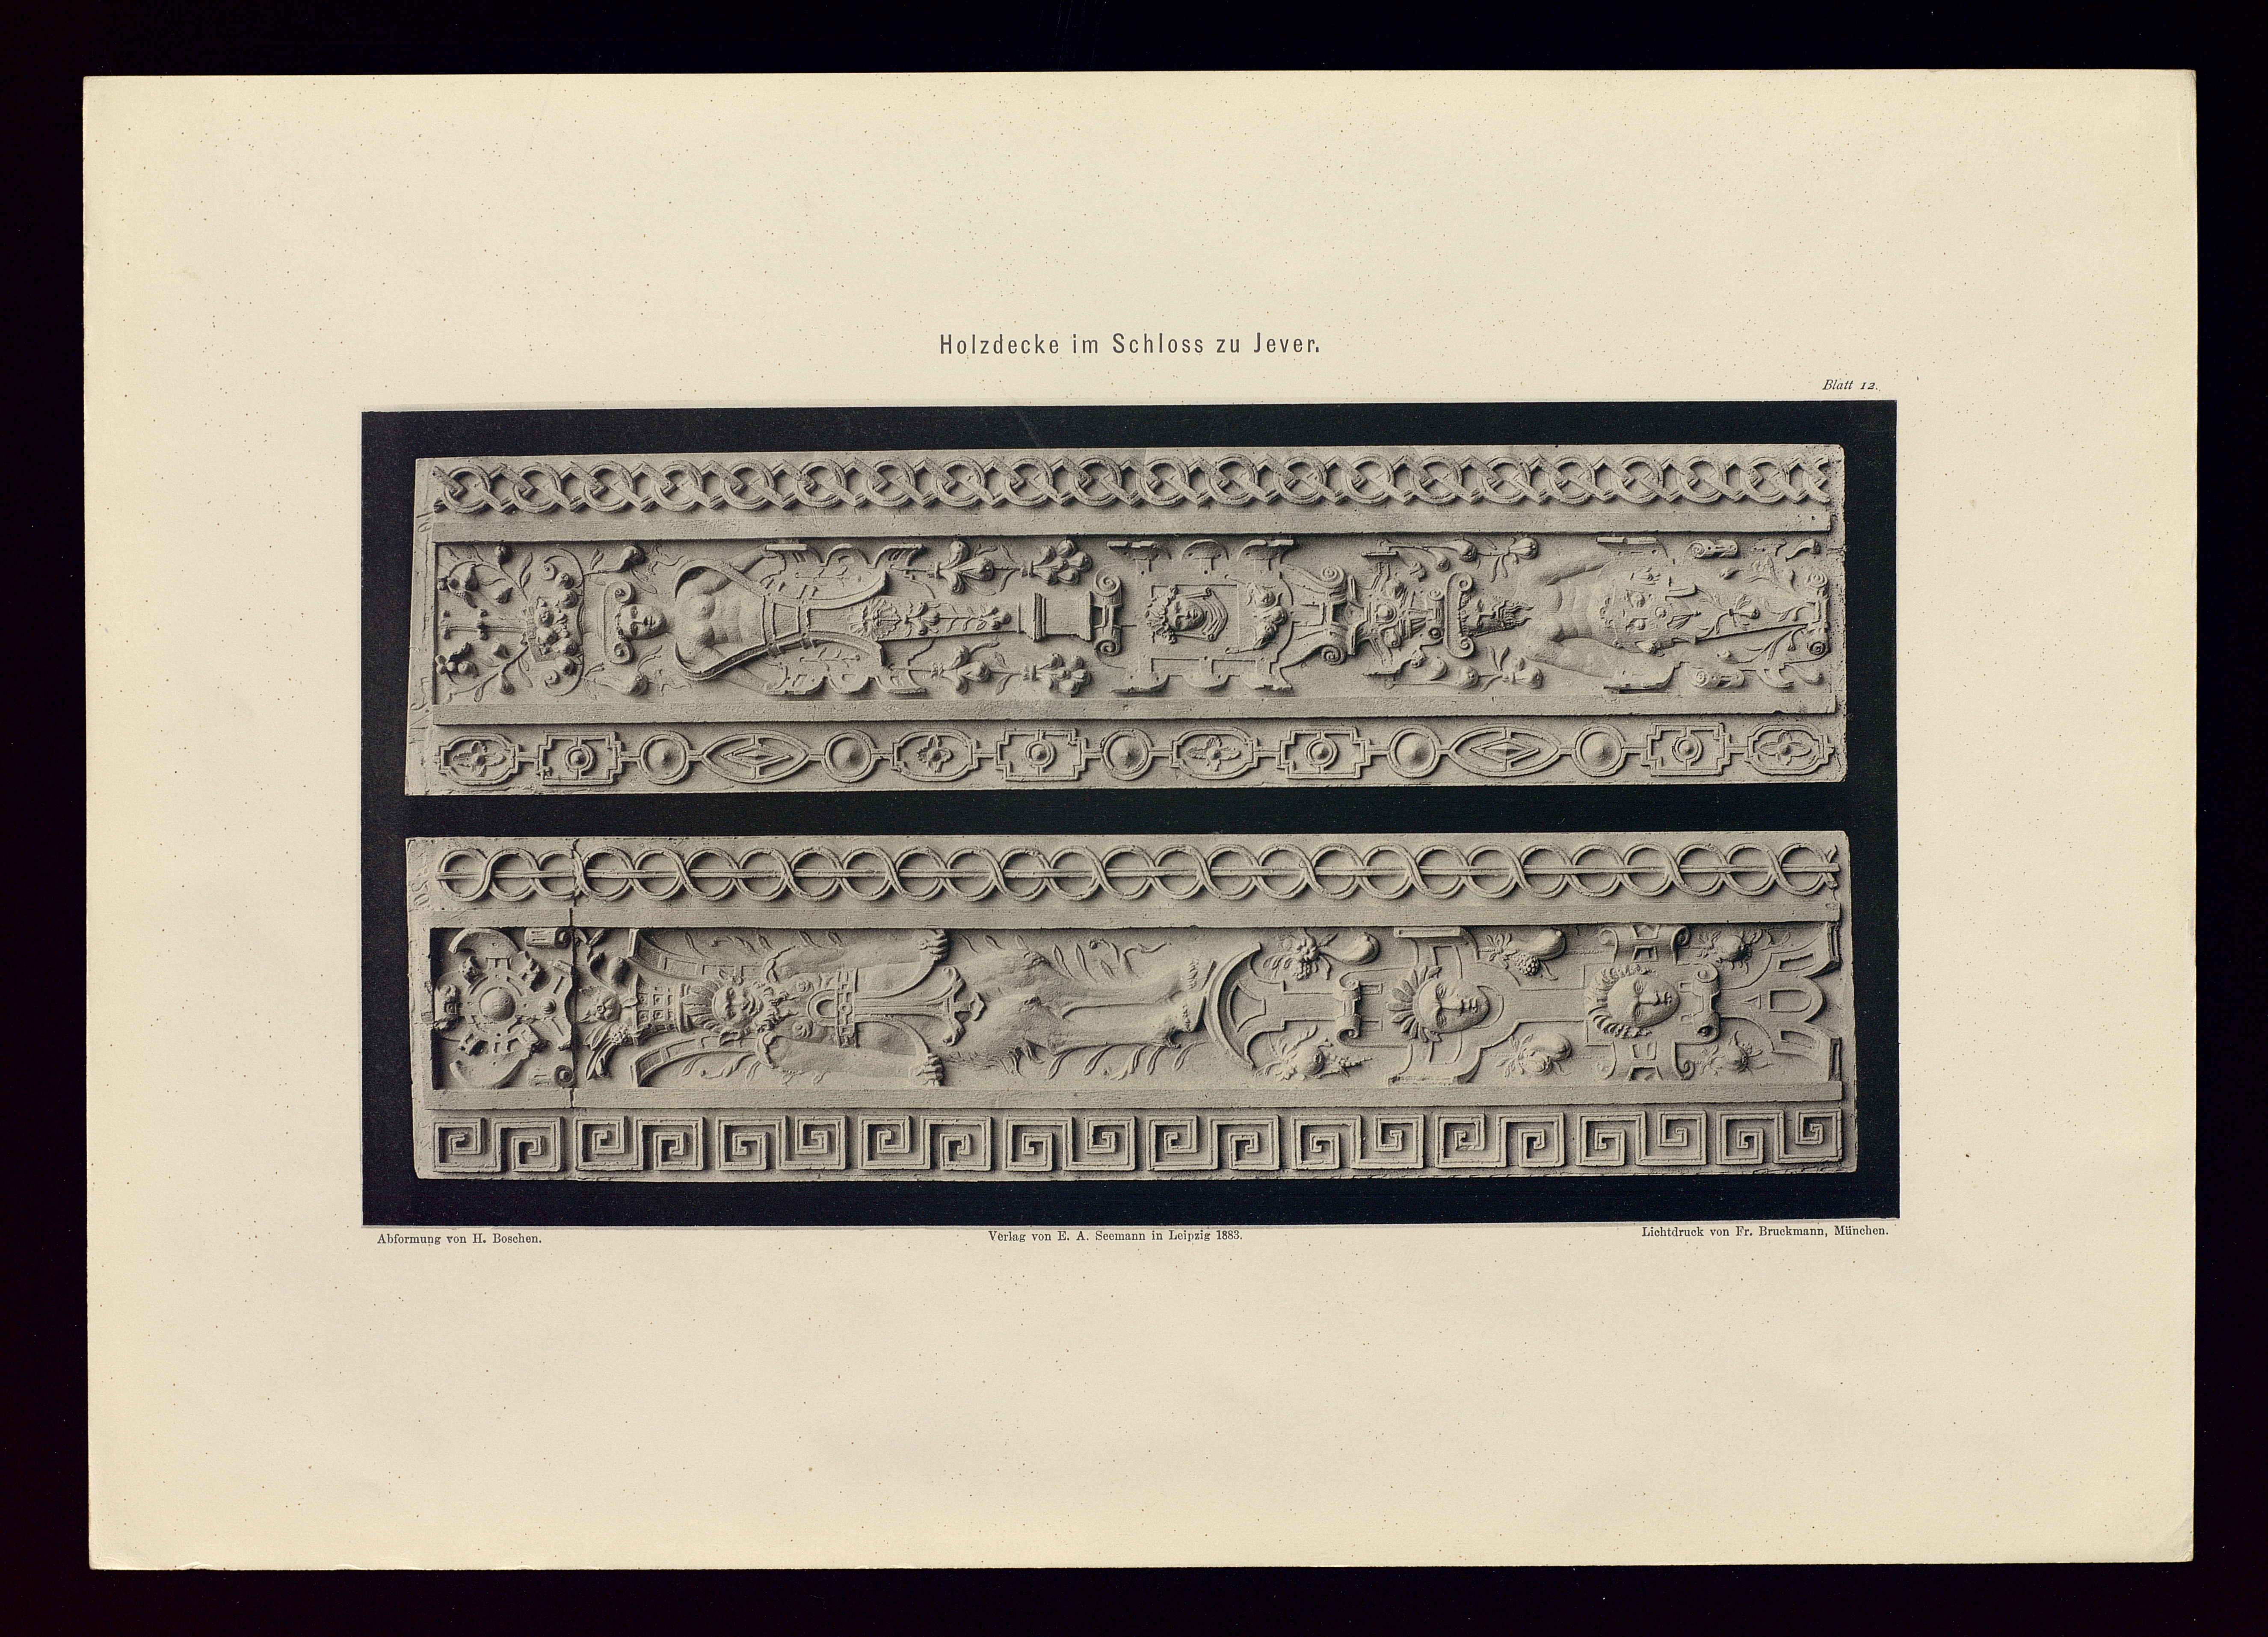 Holzdecke im Schloss zu Jever.
Blatt 12.
Abformung von H. Boschen.
Verlag von E. A. Seemann in Leipzig 1883.
Lichtdruck von Fr. Bruckmann, München.